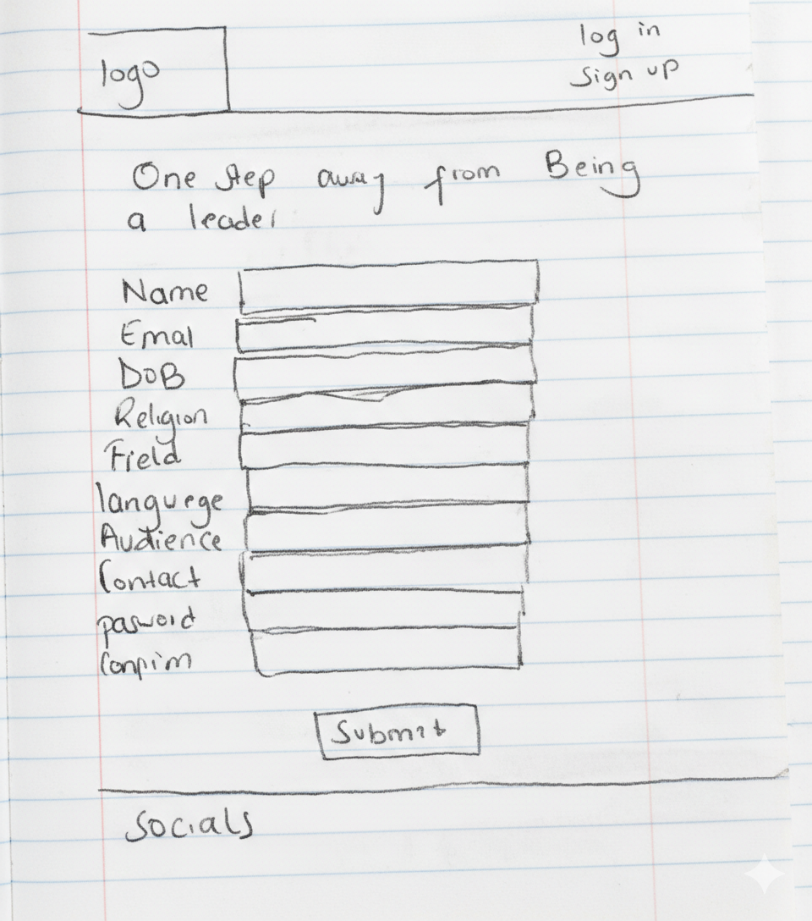 logo
log in
Sign up
One step away from Being
a leader
Name
Emal
DOB
Religion
Field
languege
Audience
Contact
pasword
Conpirm
Submit
Socials